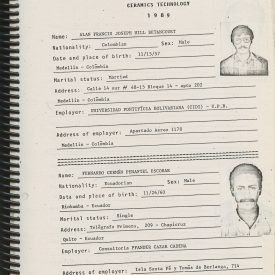 CERAMICS TECHNOLOGY
1 9 8 9
Name: ALAN FRANCIS JOSEPH HILL BETANCOURT
Nationality: Colombian Sex: Male
Date and place of birth: 11/15/57
Medellín - Colombia
Marital status: Married
Address: Calle 14 sur # 48-15 Bloque 14 - apto 202
Medellín - Colombia
Employer: UNIVERSIDAD PONTIFICIA BOLIVARIANA (CIDI) - U.P.B.
Address of employer: Apartado Aereo 1178
Medellín - Colombia
Name: FERNANDO GERMÁN PEÑAFIEL ESCOBAR
Nationality: Ecuadorian Sex: Male
Date and place of birth: 11/26/60
Riobamba - Ecuador
Marital status: Single
Address: Telégrafo Primero, 209 - Chapicruz
Quito - Ecuador
Employer: Consultoría PFANDER CAZAR CADENA
Address of employer: Isla Santa Fé y Tomás de Berlanga, 714